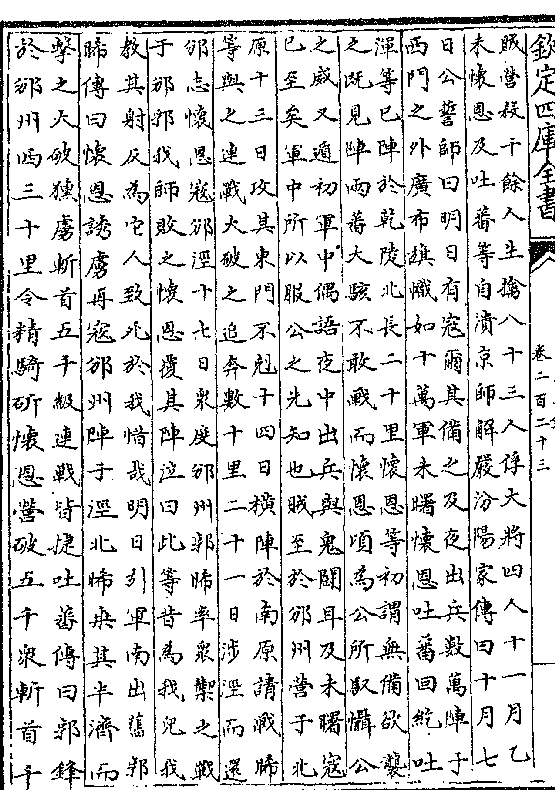 欽定四庫全書
卷二百二十三
賊營殺千餘人生擒八十三人俘大將四人十一月乙
未懷恩及吐蕃等自潰京師解嚴汾陽家傳曰十月七
日公誓師曰明日有寇爾其備之及夜出兵數萬陣于
西門之外廣布旗幟如十萬軍未曙懷恩吐蕃回紇吐
渾等已陣於乾陵北長二十里懷恩等初謂無備欲襲
之既見陣兩蕃大駭不敢戰而懷恩頃為公所馭懾公
之威又適初軍中偶語夜中出兵與鬼鬬耳及未曙寇
已至矣軍中所以服公之先知也賊至於邠州營于北
原十三日攻其東門不剋十四日橫陣於南原請戰晞
等與之連戰大破之追奔數十里二十一日涉涇而還
邠志懷恩寇邠涇十七日衆度邠州郭晞率衆禦之戰
于邠郊我師敗之懷恩覆其陣泣曰此等昔為我兒我
教其射反為它人致死於我惜哉明日引軍南出舊郭
晞傳曰懷恩誘虜再寇邠州陣于涇北晞乘其半濟而
擊之大破獯虜斬首五千級連戰皆捷吐蕃傳曰郭鋒
於邠州西三十里令精騎斫懷恩營破五千衆斬首千